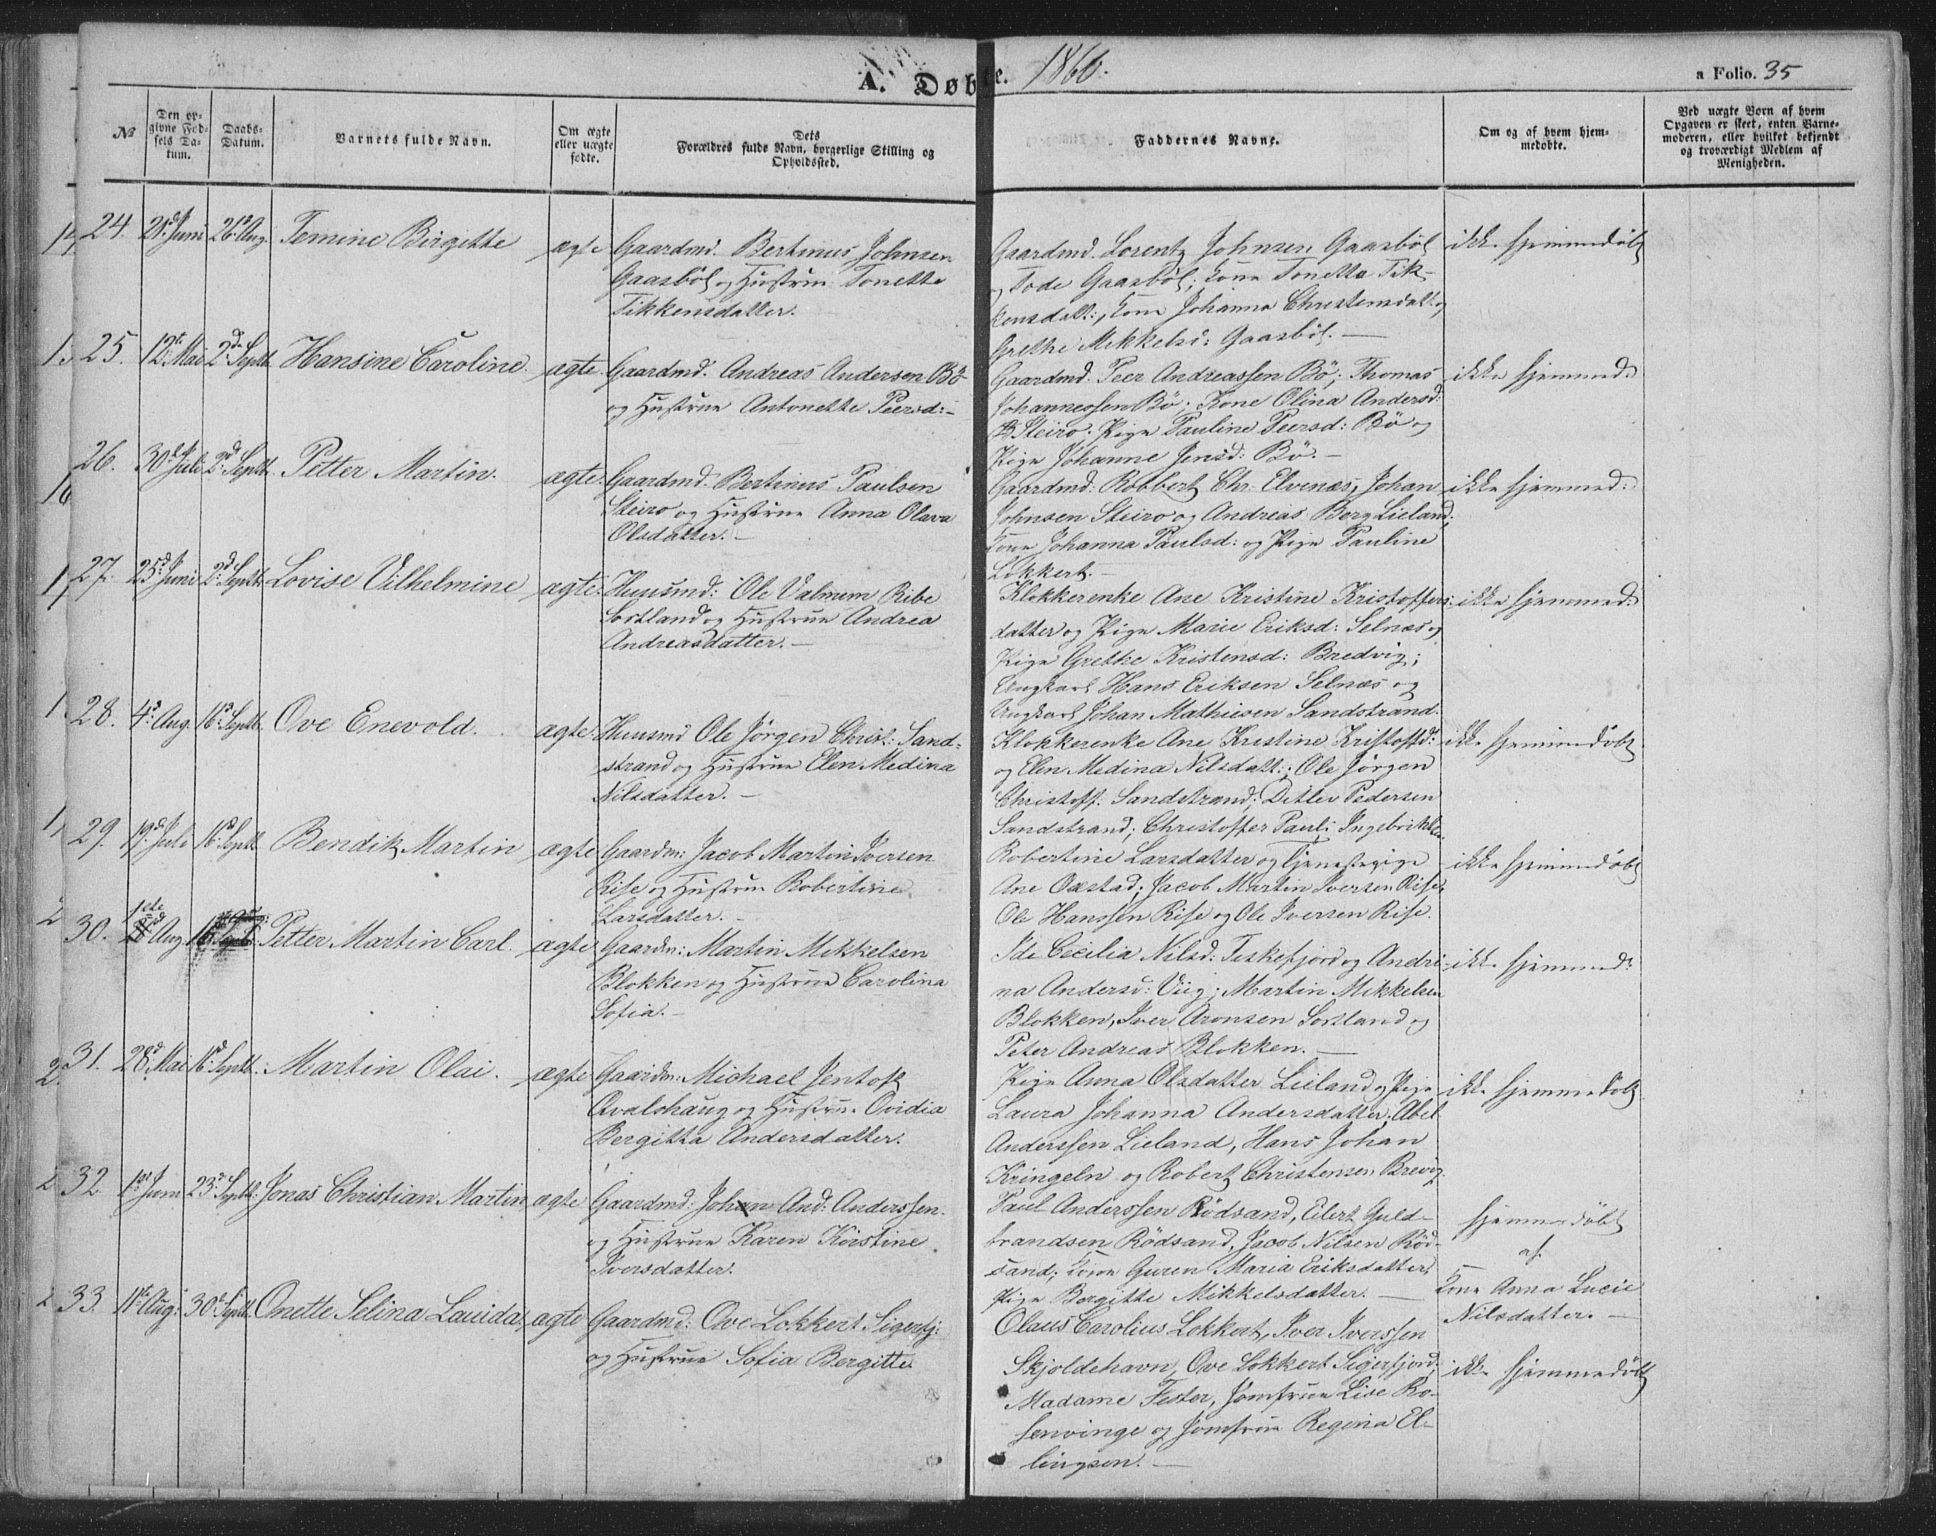 A. Døbte. 1860.
a Folio. 35
No
Den opgivne Fødsels Datum.
Daabs-Datum.
Barnets fulde Navn.
Om ægte eller uægte fødte.
Dets Forældres fulde Navn, borgerlige Stilling og Opholdssted.
Faddernes Navne.
Om og af hvem hjemmedøbte.
Ved uægte Børn af hvem Opgaven er skeet, enten Barnemoderen, eller hvilket bekjendt og troværdigt Medlem af Menigheden.
24. 21d Juni 26d Aug. Temine Birgitte ægte
Gaardmd. Bertinus Johnsen
Gaasbøl og Hustrue Tonette
Tikkensdatter.
Gaardmd. Lorentz Johnsen Gaasbøl
og Tode Gaasbøl; Kone Tonetta Tik-
kensdatt:, Kone Johanna Christensdatt: og
Grethe Mikkelsd: Gaasbøl. —
ikke hjemmedøbt
25. 12te Mai 2d Septb. Hansine Caroline. ægte.
Gaardmd. Andreas Andersen Bö
og Hustrue Antonette Peersd: —
Gaardmd. Peer Andreassen Bö; Thomas
Johannessen Bö. Kone Olina Andersd:
Steiro. Pige Pauline Peersd: Bö og
Pige Johanne Jensd: Bö. —
ikke hjemmed:
26. 30d Juli 2d Septb. Petter Martin. ægte.
Gaardmd. Bertinus Paulsen
Steiro og Hustrue Anna Olava
Olsdatter. —
Gaardmd: Robbert Chr. Elvenæs, Johan
Johnsen Steiro og Andreas Berg Lieland;
Kone Johanna Paulsd: og Pige Pauline
Lokkert. —
ikke hjemmed:
27. 25d Juni 2d Septb. Lovise Vilhelmine ægte.
Huusmd: Ole Valnum Ribe
Sortland og Hustrue Andrea
Andreasdatter. —
Klokkerenke Ane Kristine Kristoffers-
datter og Pige Marie Eriksd: Selnæs og
Pige Grethe Kristensd: Bredvig;
Ungkarl Hans Eriksen Selnæs og
Ungkarl Johan Mathiesen Sandstrand.
ikke hjemmed:
28. 4d Aug. 16d Septb. Ove Enevold. ægte.
Huusmd Ole Jørgen Christ: Sand-
strand og Hustrue Elen Medina
Nilsdatter. —
Klokkerenke Ane Kristine Kristoffd:
og Elen Medina Nilsdatt:; Ole Jørgen
Christoff. Sandstrand; Ditlev Pedersen
Sandstrand; Christoffer Pauli
ikke hjemmedøbt
29. 19d Juli 16d Septb. Bendik Martin ægte
Gaardm: Jacob Martin Iversen
Rise og Hustrue Robertine
Larsdatter. —
Robertine Larsdatter og Tjenestepige
Ane Oxstad; Jacob Martin Iversen Rise,
Ole Hanssen Rise og Ole Iversen Rise.
ikke hjemmedøbt
30. 1ste Aug. Petter Martin Carl. ægte
Gaardm: Martin Mikkelsen
Blokken og Hustrue Carolina
Sofia. —
Ide Cecilia Nilsd: Teskefjord og Andri-
na Andersd: Viig; Martin Mikkelsen
Blokken, Iver Aronsen Sortland og
Peter Andreas Blokken. —
ikke hjemmed:
31. 28d Mai 16d Septb. Martin Olai. ægte
Gaardm: Michael Jentoft
Qvalshaug og Hustrue Ovidia
Bergitta Andersdatter.
Pige Anna Olsdatter Lieland og Pige
Laura Johanna Andersdatter; Abel
Anderssen Lieland, Hans Johan
Kringeln og Robert Christensen Brevig
ikke hjemmedøbt
32. 1ste Juni 23d Septb: Jonas Christian Martin ægte
Gaardmd: Johan And: Anderssen
og Hustrue Karen Kirstine
Iversdatter.
Paul Anderssen Rödsand, Eilert Guld-
brandsen Rödsand, Jacob Nilsen Röd-
sand; Kone Guren Maria Eriksdatter,
Pige Bergitte Mikkelsdatter. —
hjemmedøbt
af
Kone Anna Lucie
Nilsdatter. —
33. 11te Aug: 30te Septb. Onette Selina Lauida, ægte
Gaardmd: Ove Lokkert Sigerfj:
og Hustrue Sofia Bergitte
Olaus Carolius Lokkert, Iver Iverssen
Skjoldehavn, Ove Lokkert Sigerfjord;
Madame Fester, Jomfrue Lise Ro-
senvinge og Jomfrue Regina El-
lingsen. —
ikke hjemmedøbt